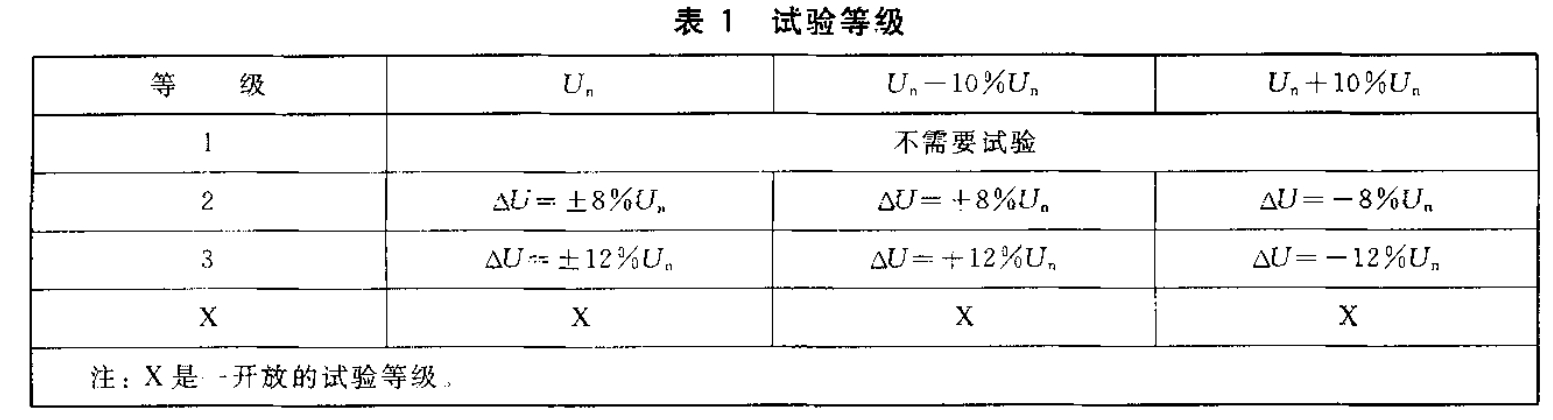 表 1 试验等级
等 级 Uₙ Uₙ－10％Uₙ Uₙ＋10％Uₙ
1 不需要试验
2 ΔU＝±8％Uₙ ΔU＝＋8％Uₙ ΔU＝－8％Uₙ
3 ΔU＝±12％Uₙ ΔU＝＋12％Uₙ ΔU＝－12％Uₙ
X X X X
注：X是一开放的试验等级。